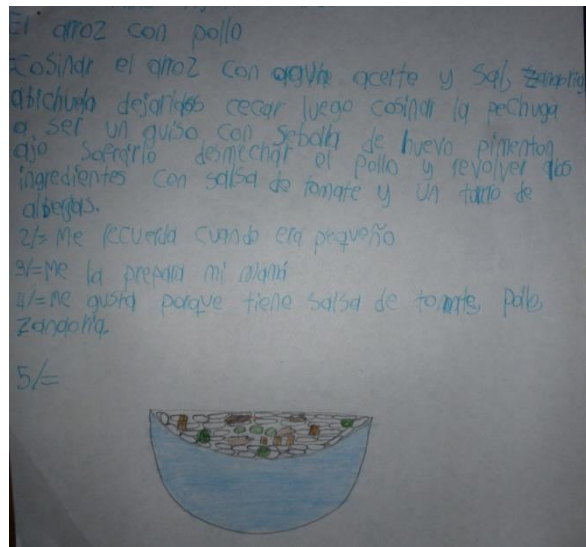 El arroz con pollo
Cosinar el arroz con agua aceite y sal, zandoria
abichuela dejarlos cecar luego cosinar la pechuga
a ser un guiso con sebolla de huevo pimenton
ajo sofrarlo desmechar el pollo y revolver los
ingredientes con salsa de tomate y un tarro de
albergas.
2/= Me recuerda cuando era pequeño
3/= Me la prepara mi mamá
4/= Me gusta porque tiene salsa de tomate, pollo,
zandoria.
5/=